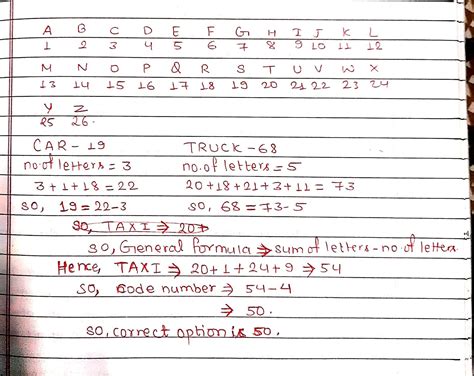 A B C D E F G H I J K L
1 2 3 4 5 6 7 8 9 10 11 12
M N O P Q R S T U V W X
13 14 15 16 17 18 19 20 21 22 23 24
Y Z
25 26.
CAR - 19 TRUCK - 68
no. of letters = 3 no. of letters = 5
3 + 1 + 18 = 22 20 + 18 + 21 + 3 + 11 = 73
so, 19 = 22 - 3 so, 68 = 73 - 5
so, TAXI ⇒ 20+
so, General formula ⇒ sum of letters - no. of letters
Hence, TAXI ⇒ 20 + 1 + 24 + 9 ⇒ 54
so, code number ⇒ 54 - 4
⇒ 50.
so, correct option is 50.